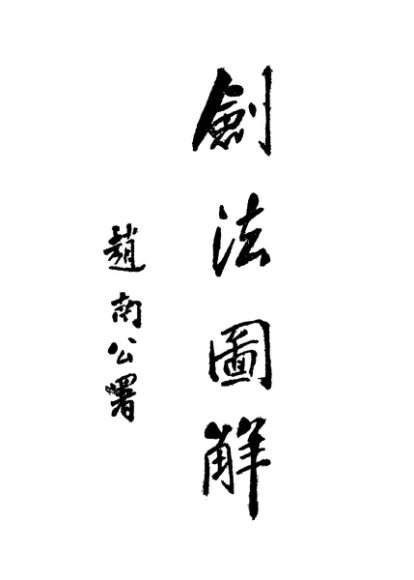 劍法圖解
趙南公署